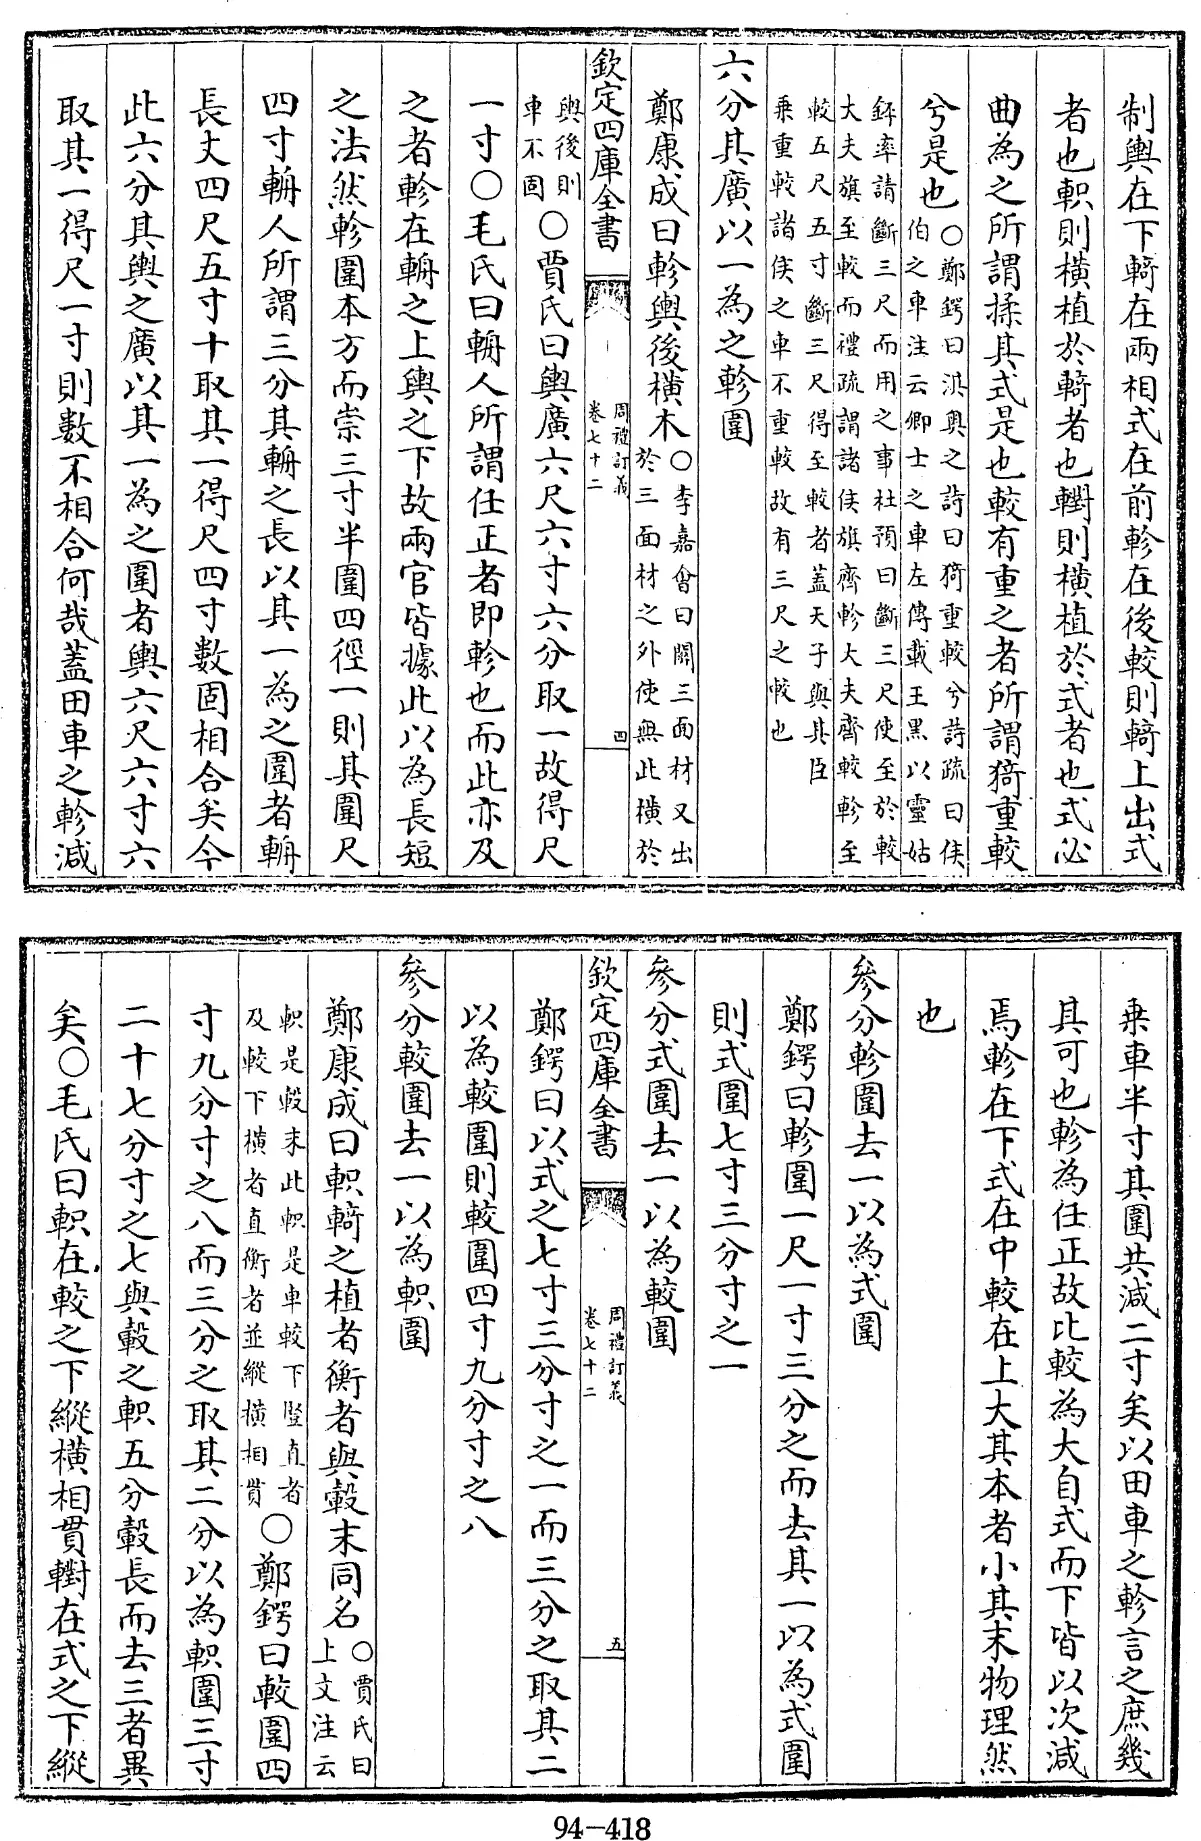 制輿在下輢在兩相式在前軫在後較則輢上出式
者也軹則横植於輢者也轛則横植於式者也式必
曲為之所謂揉其式是也較有重之者所謂猗重較
兮是也○鄭鍔曰淇奥之詩曰猗重較兮詩疏曰侯
伯之車注云卿士之車左傳載王黑以靈姑
銔率請斷三尺而用之事杜預曰斷三尺使至於較
大夫旗至較而禮疏謂諸侯旗齊軫大夫齊較軫至
較五尺五寸斷三尺得至較者蓋天子與其臣
乗重較諸侯之車不重較故有三尺之較也
六分其廣以一為之軫圍
鄭康成曰軫輿後横木○李嘉會曰闗三面材又出
於三面材之外使無此横於
欽定四庫全書
周禮訂義
卷七十二
四
輿後則
車不固○賈氏曰輿廣六尺六寸六分取一故得尺
一寸○毛氏曰輈人所謂任正者即軫也而此亦及
之者軫在輈之上輿之下故兩官皆據此以為長短
之法然軫圍本方而崇三寸半圍四徑一則其圍尺
四寸輈人所謂三分其輈之長以其一為之圍者輈
長丈四尺五寸十取其一得尺四寸數固相合矣今
此六分其輿之廣以其一為之圍者輿六尺六寸六
取其一得尺一寸則數不相合何哉蓋田車之軫減
乗車半寸其圍共減二寸矣以田車之軫言之庶幾
其可也軫為任正故比較為大自式而下皆以次減
焉軫在下式在中較在上大其本者小其末物理然
也
參分軫圍去一以為式圍
鄭鍔曰軫圍一尺一寸三分之而去其一以為式圍
則式圍七寸三分寸之一
參分式圍去一以為較圍
欽定四庫全書
周禮訂義
卷七十二
五
鄭鍔曰以式之七寸三分寸之一而三分之取其二
以為較圍則較圍四寸九分寸之八
參分較圍去一以為軹圍
鄭康成曰軹輢之植者衡者與轂末同名○賈氏曰
上文注云
軹是轂末此軹是車較下豎直者
及較下横者直衡者並縱横相貫○鄭鍔曰較圍四
寸九分寸之八而三分之取其二分以為軹圍三寸
二十七分寸之七與轂之軹五分轂長而去三者異
矣○毛氏曰軹在較之下縱横相貫轛在式之下縱
94-418